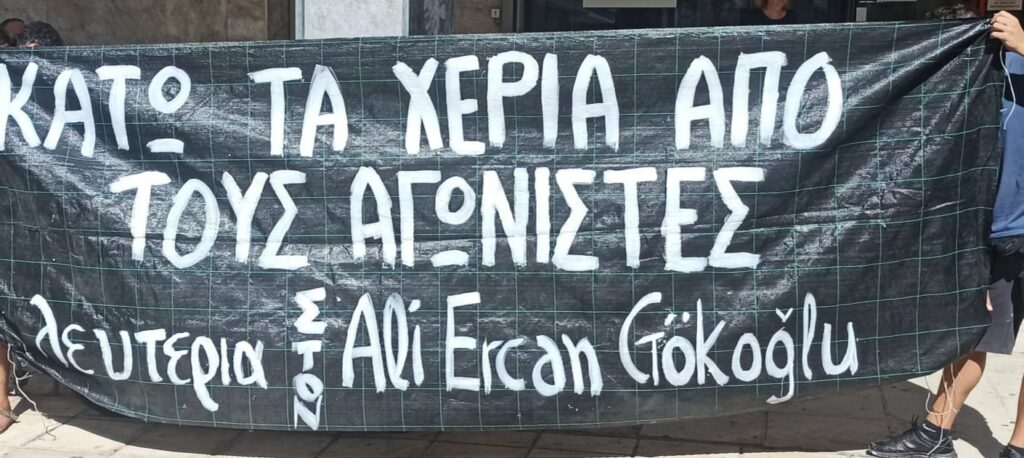 ΚΑΤΩ ΤΑ ΧΕΡΙΑ ΑΠΟ
ΤΟΥΣ ΑΓΩΝΙΣΤΕΣ
λευτερια ΣΤΟΝ Ali Ercan Gökoğlu